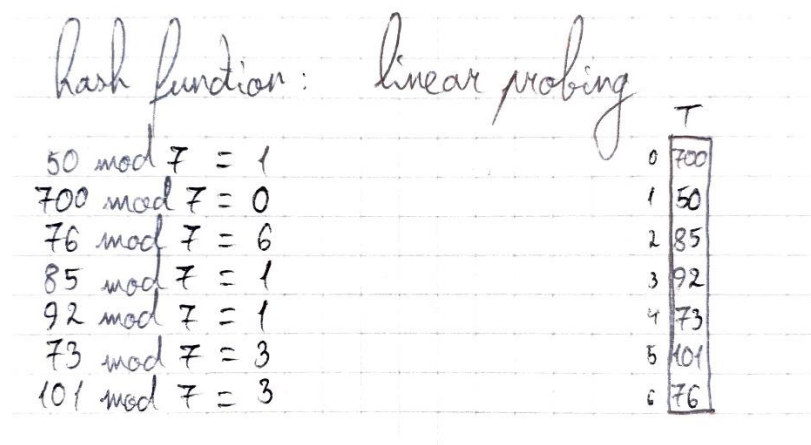 hash function: linear probing
T
50 mod 7 = 1
700 mod 7 = 0
76 mod 7 = 6
85 mod 7 = 1
92 mod 7 = 1
73 mod 7 = 3
101 mod 7 = 3
0 700
1 50
2 85
3 92
4 73
5 101
6 76